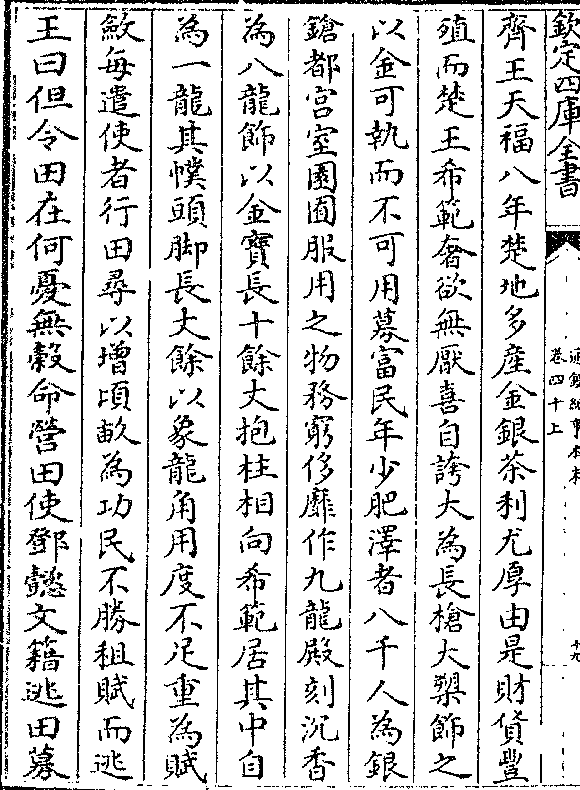 欽定四庫全書
卷四十上
齊王天福八年楚地多產金銀茶利尤厚由是財貨豐
殖而楚王希範奢欲無厭喜自誇大為長槍大槊飾之
以金可執而不可用募富民年少肥澤者八千人為銀
鎗都宮室園囿服用之物務窮侈靡作九龍殿刻沉香
為八龍飾以金寶長十餘丈抱柱相向希範居其中自
為一龍其幞頭脚長丈餘以象龍角用度不足重為賦
斂每遣使者行田尋以增頃畝為功民不勝租賦而逃
王曰但令田在何憂無穀命營田使鄧懿文籍逃田募